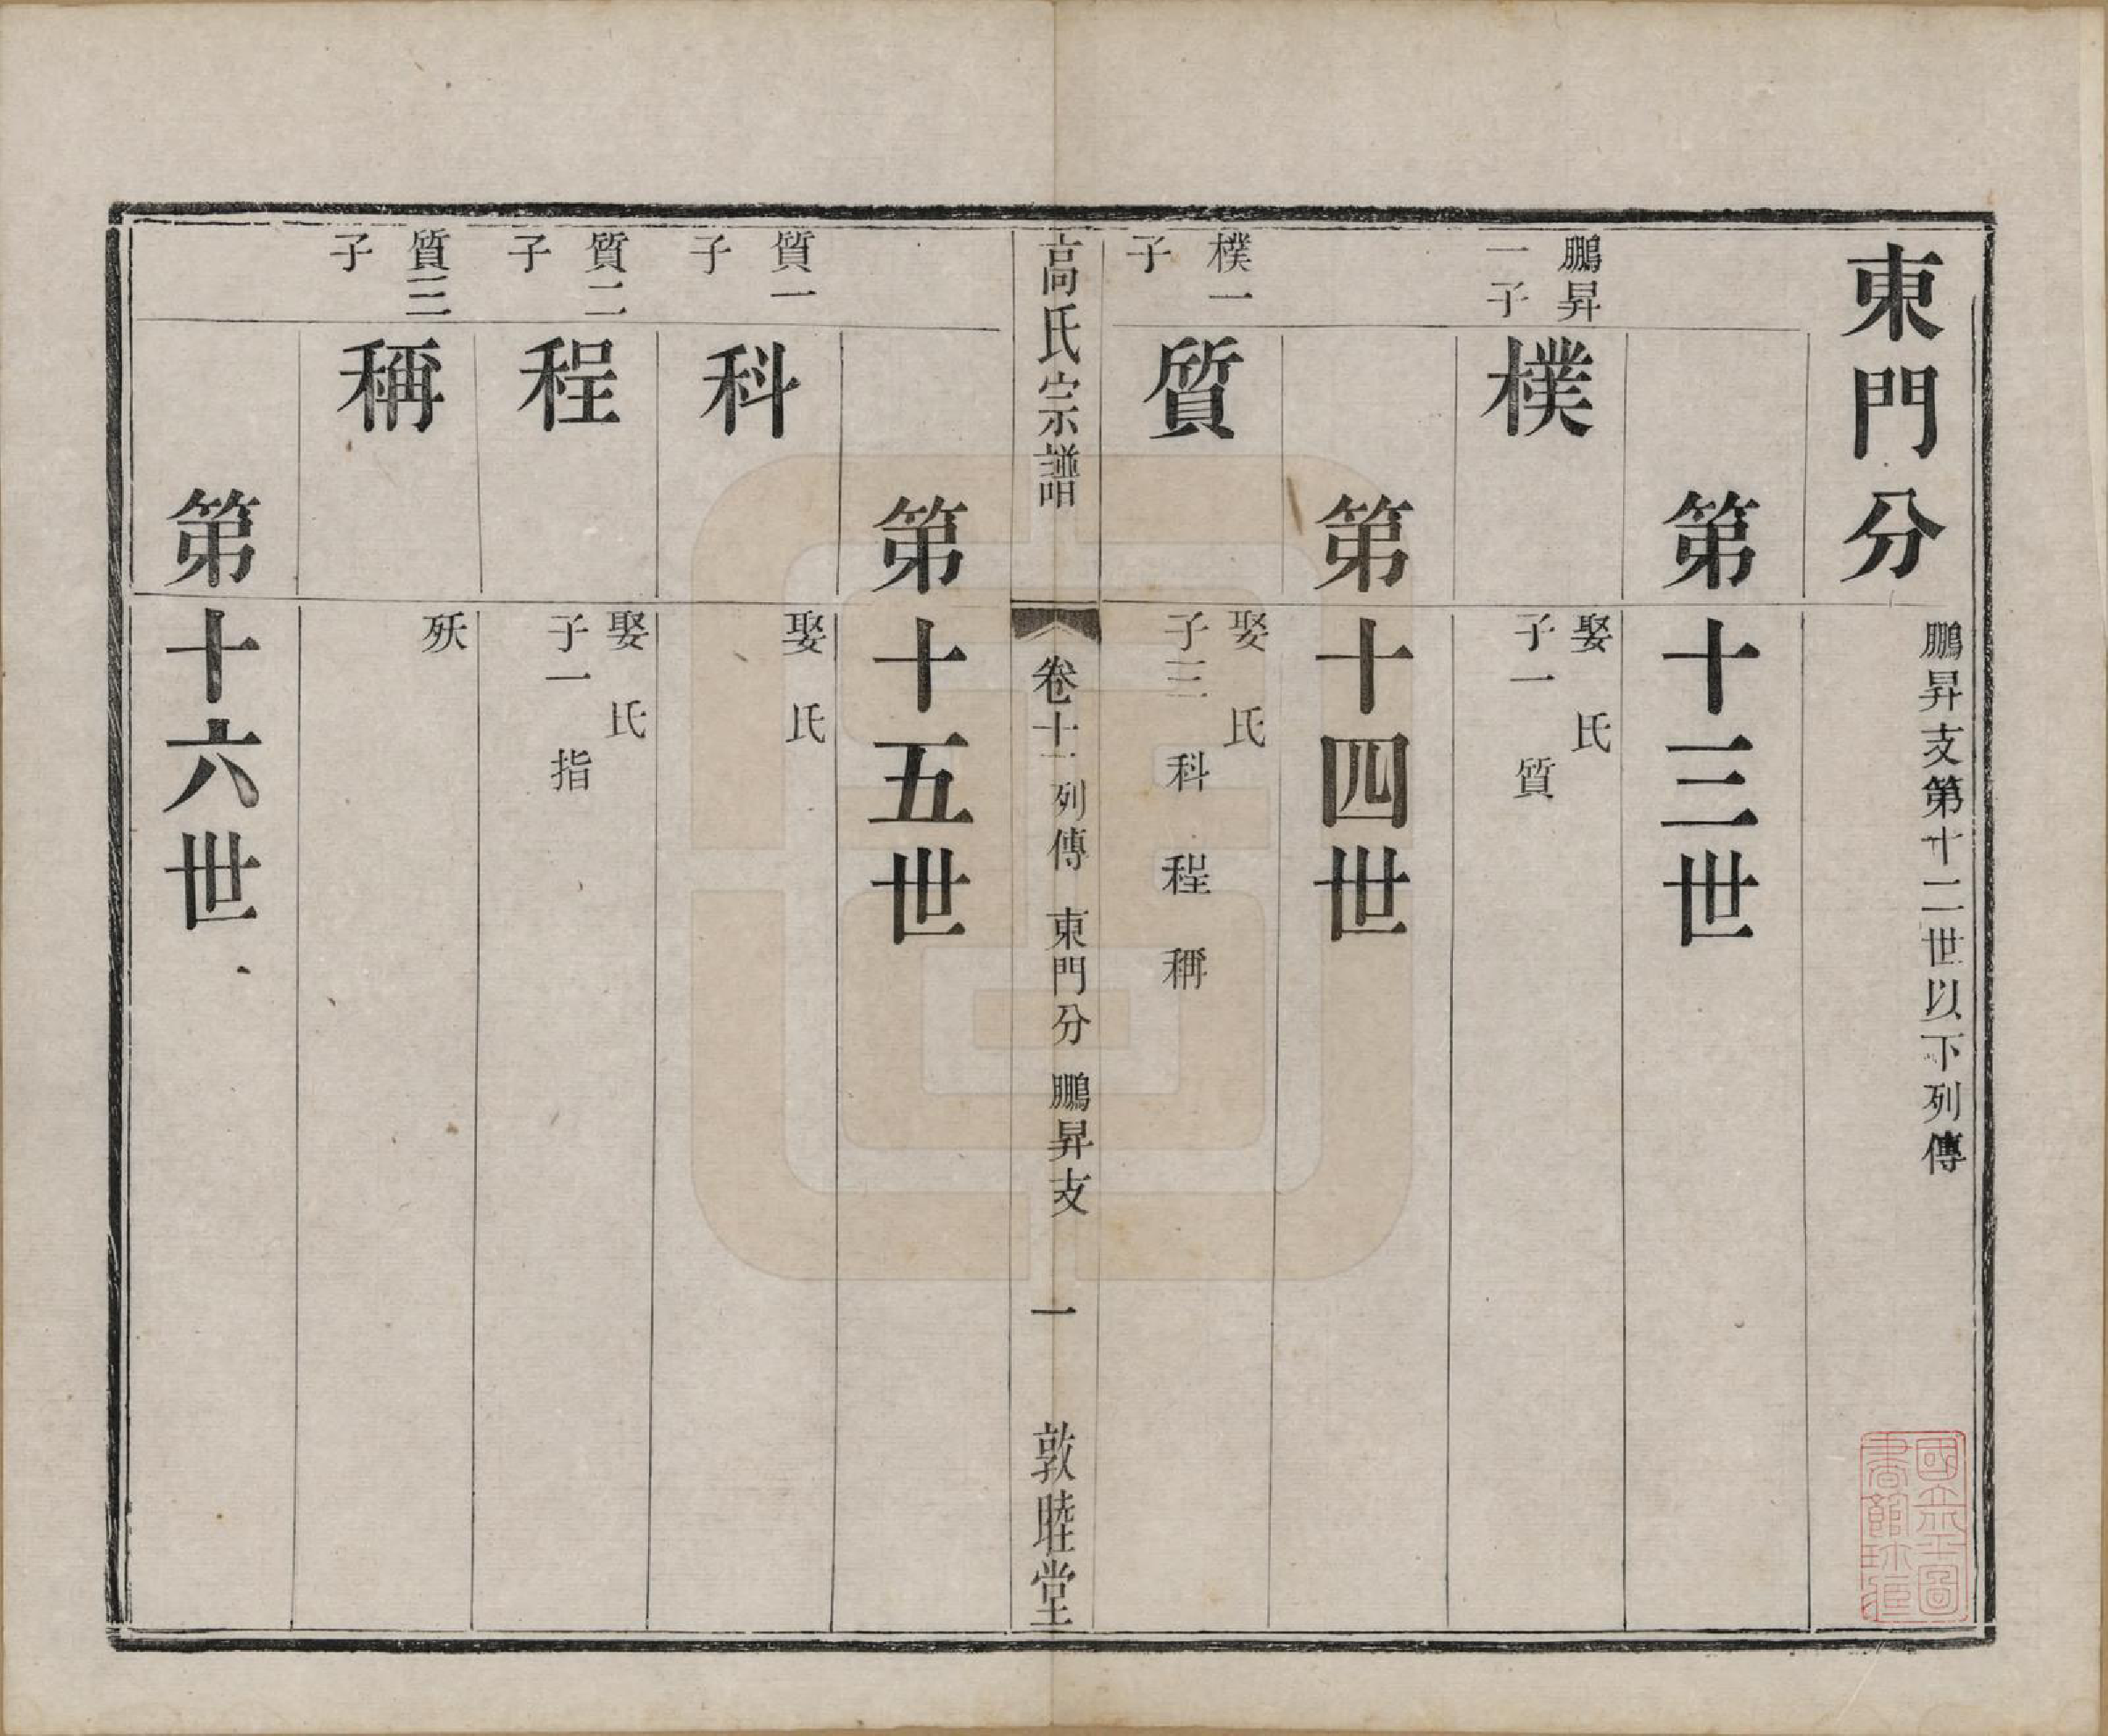 東門分
鵬昇支第十二世以下列傳
第十三世
鵬昇
一子
樸
娶 氏
子一 質
第十四世
樸一
子
質
娶 氏
子三 科 程 稱
高氏宗譜
卷十一 列傳 東門分 鵬昇支 一 敦睦堂
第十五世
質一
子
科
娶 氏
質二
子
程
娶 氏
子一 指
質三
子
稱
殀
第十六世
國立北平圖
書館珍藏